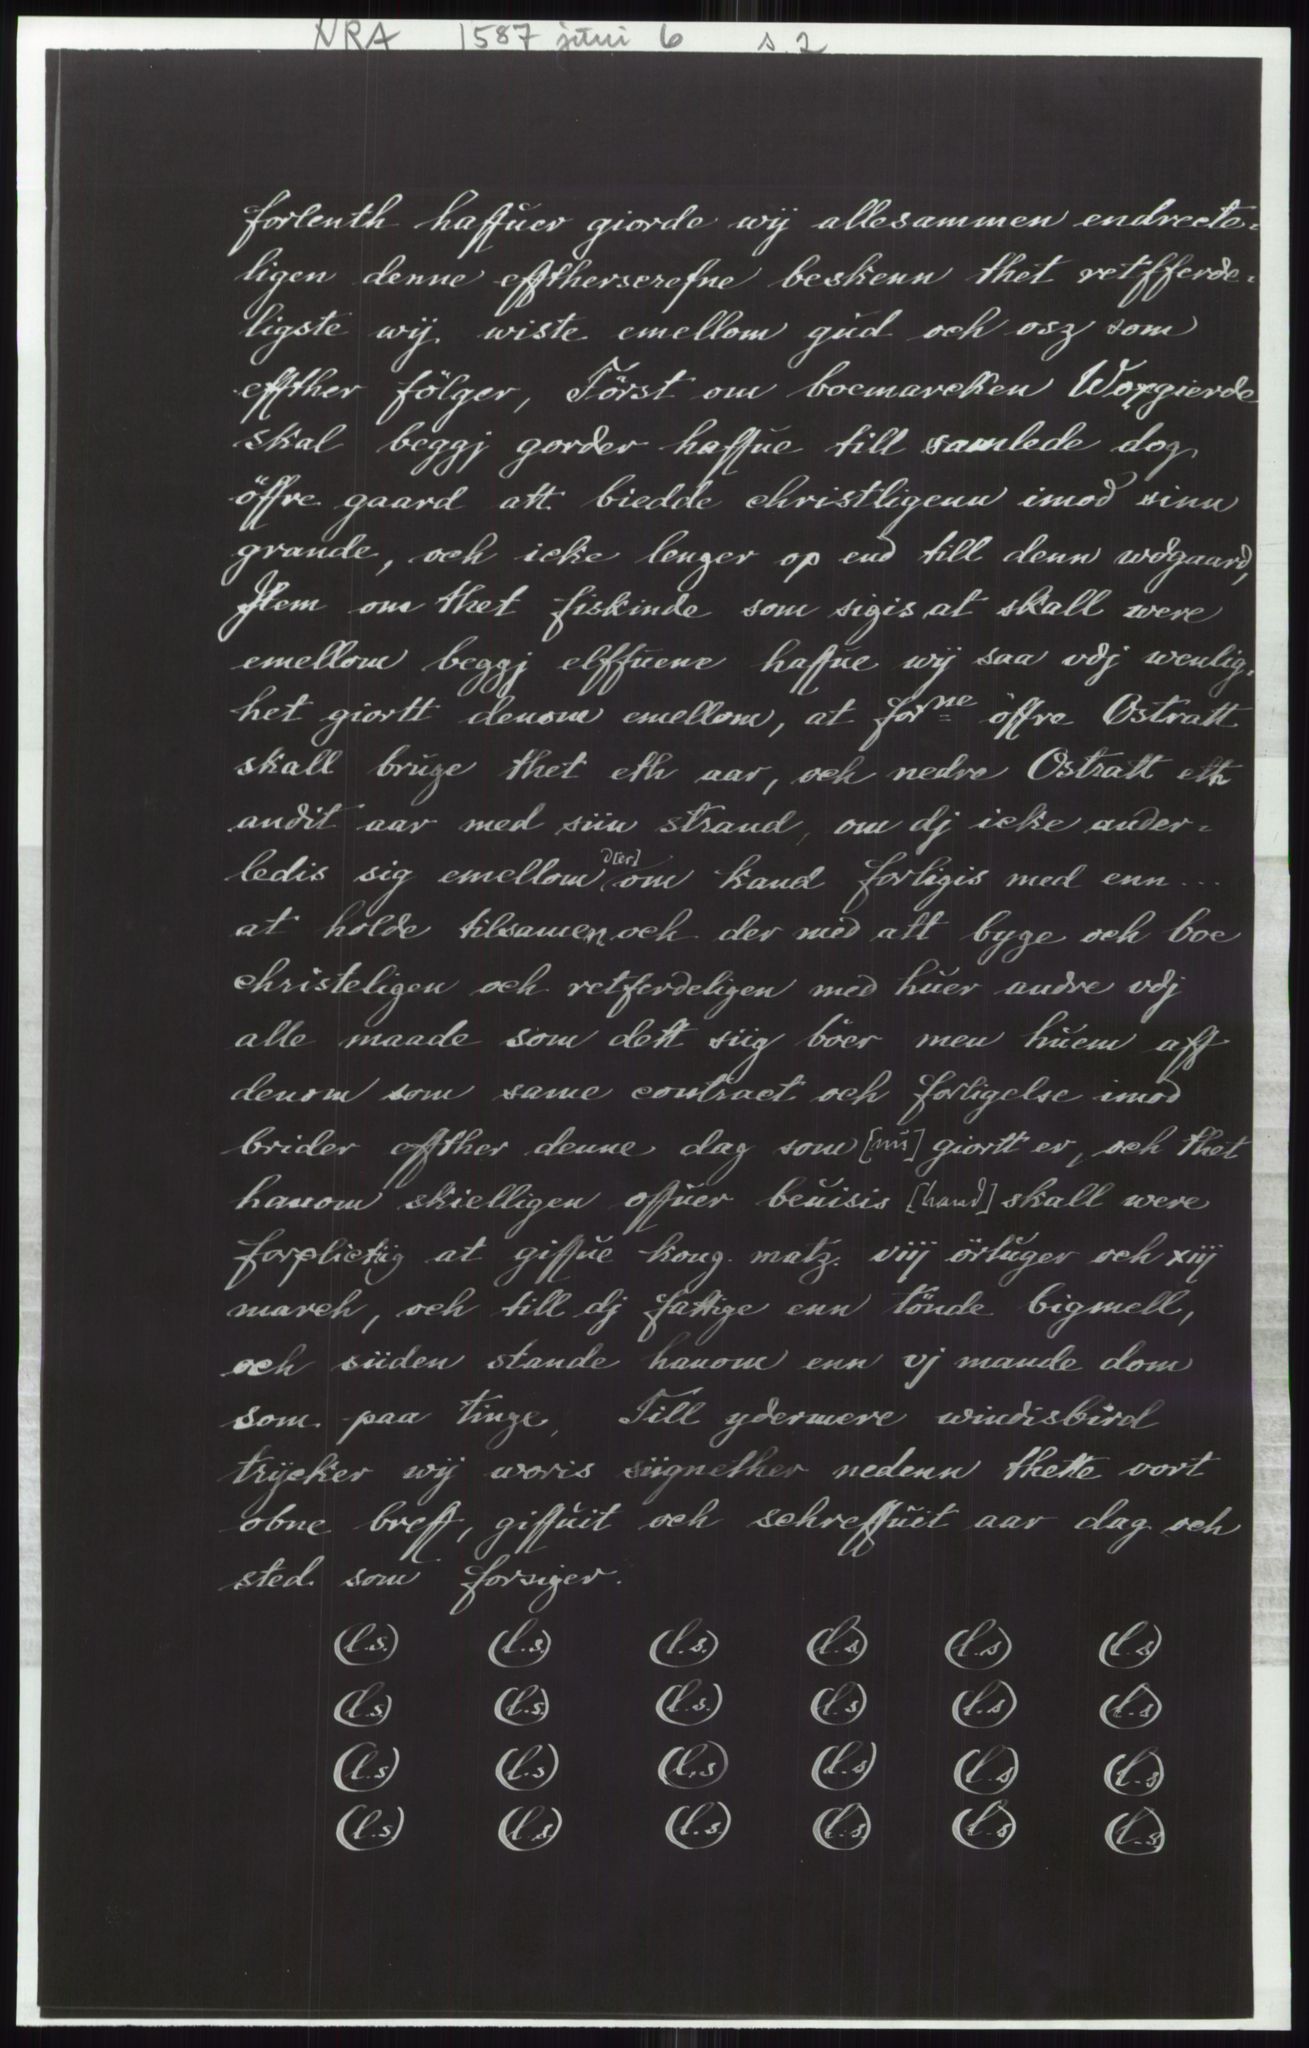 NRA 1587 juni 6 s. 2
forlenth haffuer giorde wij allesammen endrecte-
ligen denne efftherscrefne beskenn thet retfferde-
ligste wij wiste emellom gud och osz som
effther fölger, Först om boemarcken Woxgierde
skal beggj gorder haffue till samlede dog
öffre gaard att biedde christligenn imod sinn
grande, och icke lenger op end till denn wdgaard,
Item om thet fiskinde som sigis at skall were
emellom beggj elffuene haffue wij saa vdj wenlig-
het giortt denom emellom, at forne öffre Ostratt
skall bruge thet eth aar, och nedre Ostratt eth
andit aar med siin strand, om dj icke ander-
ledis sig emellom d[er] om kand forligis med enn ...
at holde tilsamen och der med att byge och boe
christeligen och retferdeligen med huer andre vdj
alle maade som dett siig böer men huem aff
denom som same contract och forligelse imod
brider effther denne dag som [nu] giortt er, och thet
hanom skielligen offuer beuisis [hand] skall were
forplictiig at giffue kong. matz. viij örtuger och xiij
march, och till dj fattige enn tönde bigmell,
och siiden stande hanom enn vj mande dom
som paa tinge, Till ydermere windisbird
trycker wij woris siignether nedenn thette vort
obne breff, giffuit och schreffuit aar dag och
sted som forsiger.
(l.s.) (l.s.) (l.s.) (l.s) (l.s) (l.s)
(l.s.) (l.s.) (l.s.) (l.s) (l.s) (l.s)
(l.s) (l.s) (l.s) (l.s) (l.s) (l.s)
(l.s) (l.s.) (l.s) (l.s.) (l.s) (l.s)